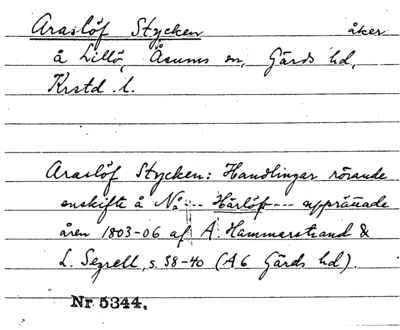 Araslöf Stycken åker
å Lillö, Åsums sn, Gärds hd,
Krstd. l.
Araslöf Stycken: Handlingar rörande
enskifte å No --- Härlöf --- upprättade
åren 1803-06 af A. Hammarstrand &
L. Segrell, s. 38-40 (A6 Gärds hd).
Nr 5344.